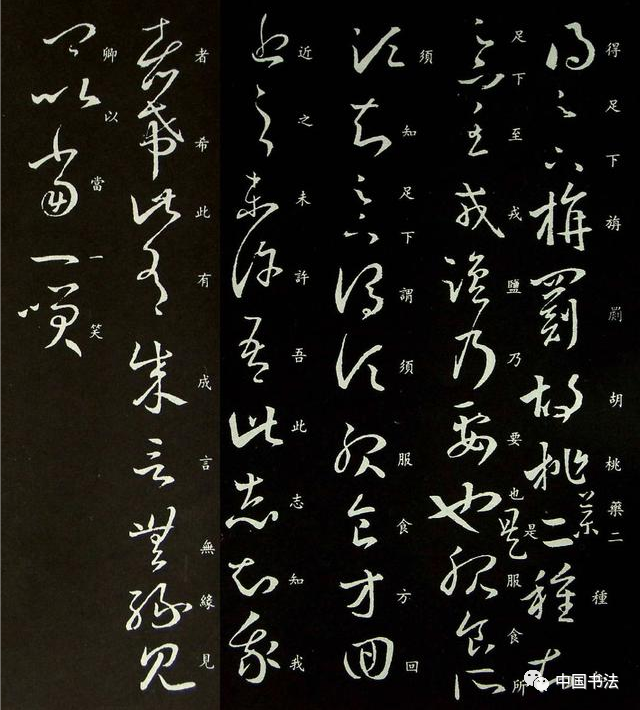 得足下旃罽胡桃藥二種知
足下至戎鹽乃要也是服食所
須知足下謂須服食方回
近之未許吾此志知我
者希此有成言無緣見
卿以當一笑
中国书法